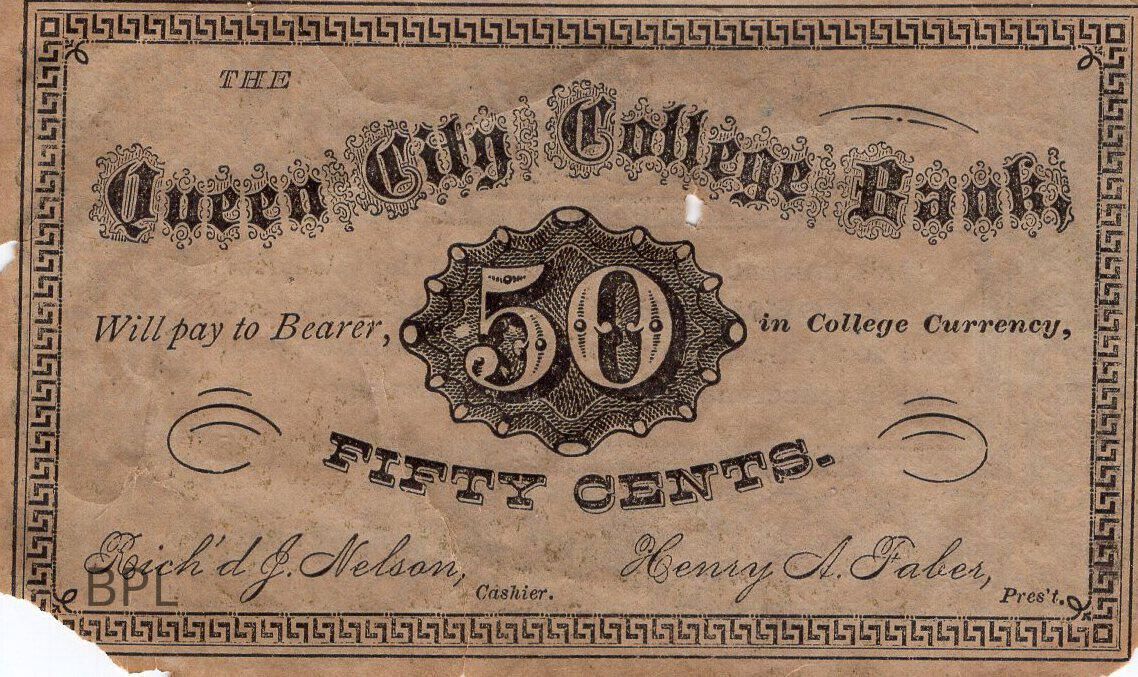 THE
Queen City College Bank,
Will pay to Bearer, 50 in College Currency,
FIFTY CENTS.
Rich'd J. Nelson, Cashier. Henry A. Faber, Pres't.
BPL